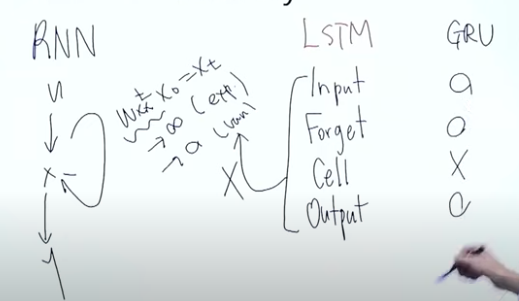 RNN
u
x
y
W_xx^t x_0 = x_t
→ ∞ (exp)
→ 0 (van)
X
LSTM GRU
Input O
Forget O
Cell X
Output O